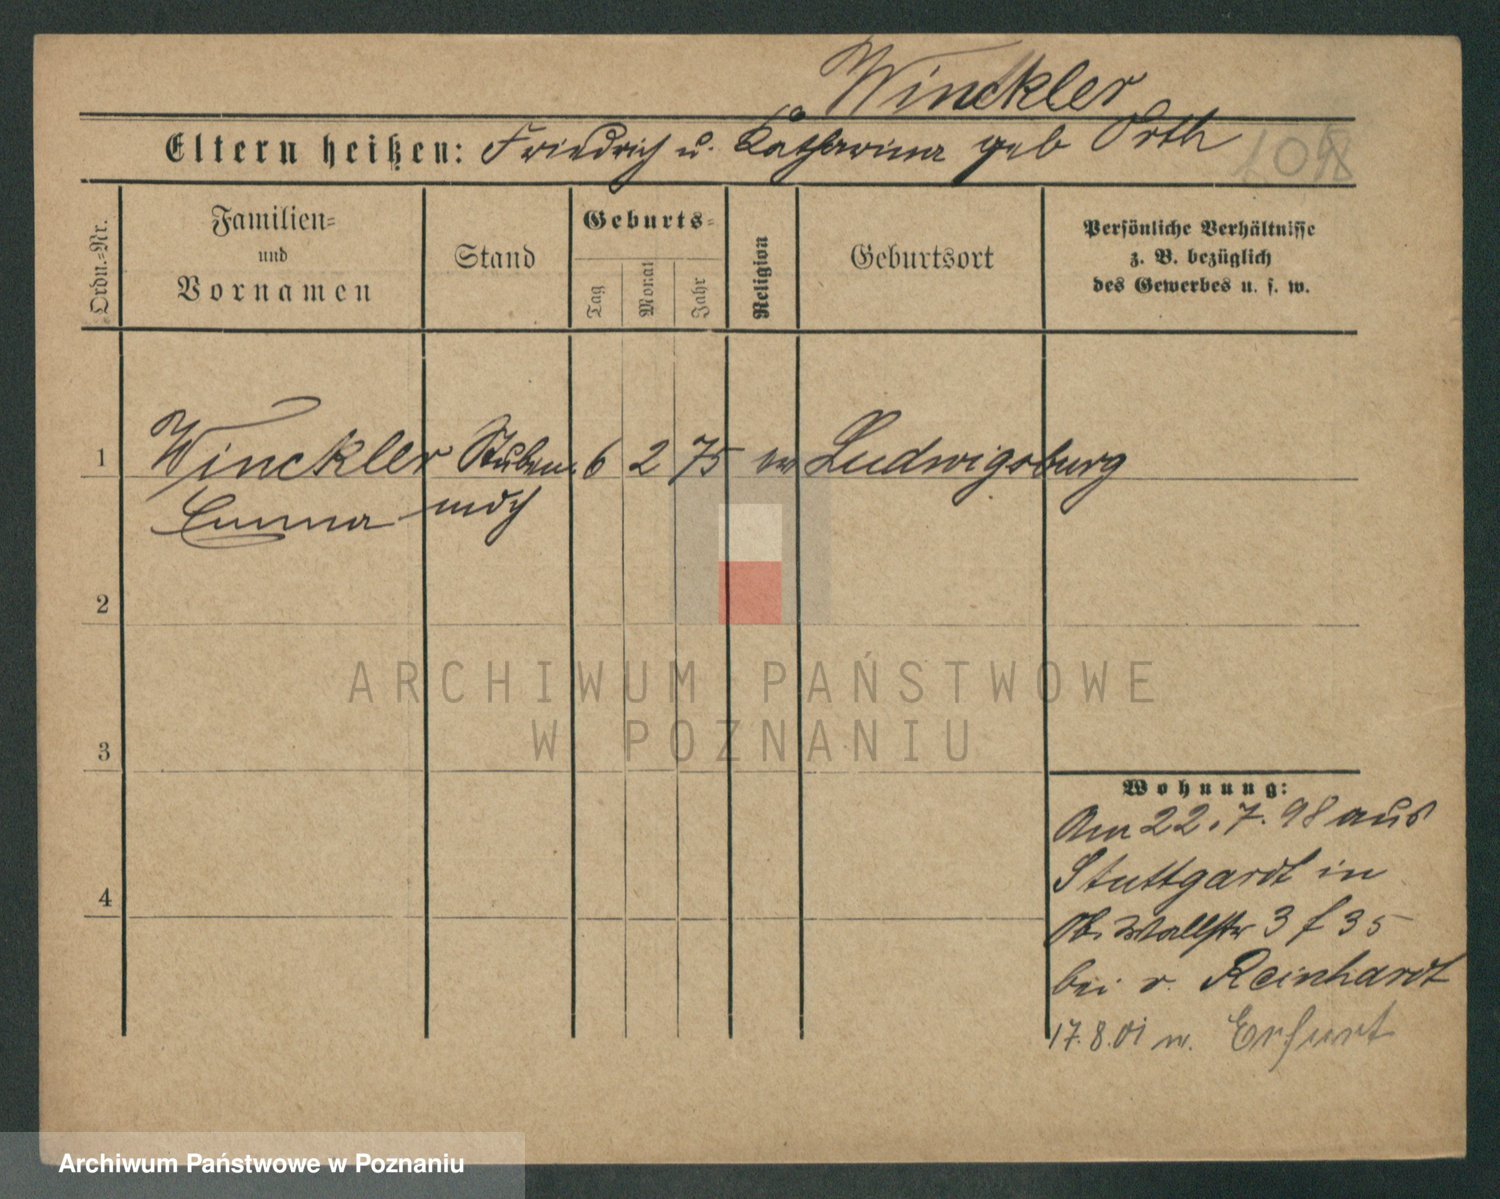 Winckler
Eltern heißen: Friedrich u. Katharina geb Orth
Ordn.-Nr.
Familien-
und
Vornamen
Stand
Geburts-
Tag
Monat
Jahr
Religion
Geburtsort
Persönliche Verhältnisse
z. B. bezüglich
des Gewerbes u. s. w.
1 Winckler Stuben 6 2 75 ev Ludwigsburg
Emma mdch
2
ARCHIWUM PAŃSTWOWE
W POZNANIU
3
Wohnung:
Am 22.7.98 aus
Stuttgardt in
Ob. Wallstr 3 f 35
bei v. Reinhardt
4
17.8.01 n. Erfurt
Archiwum Państwowe w Poznaniu